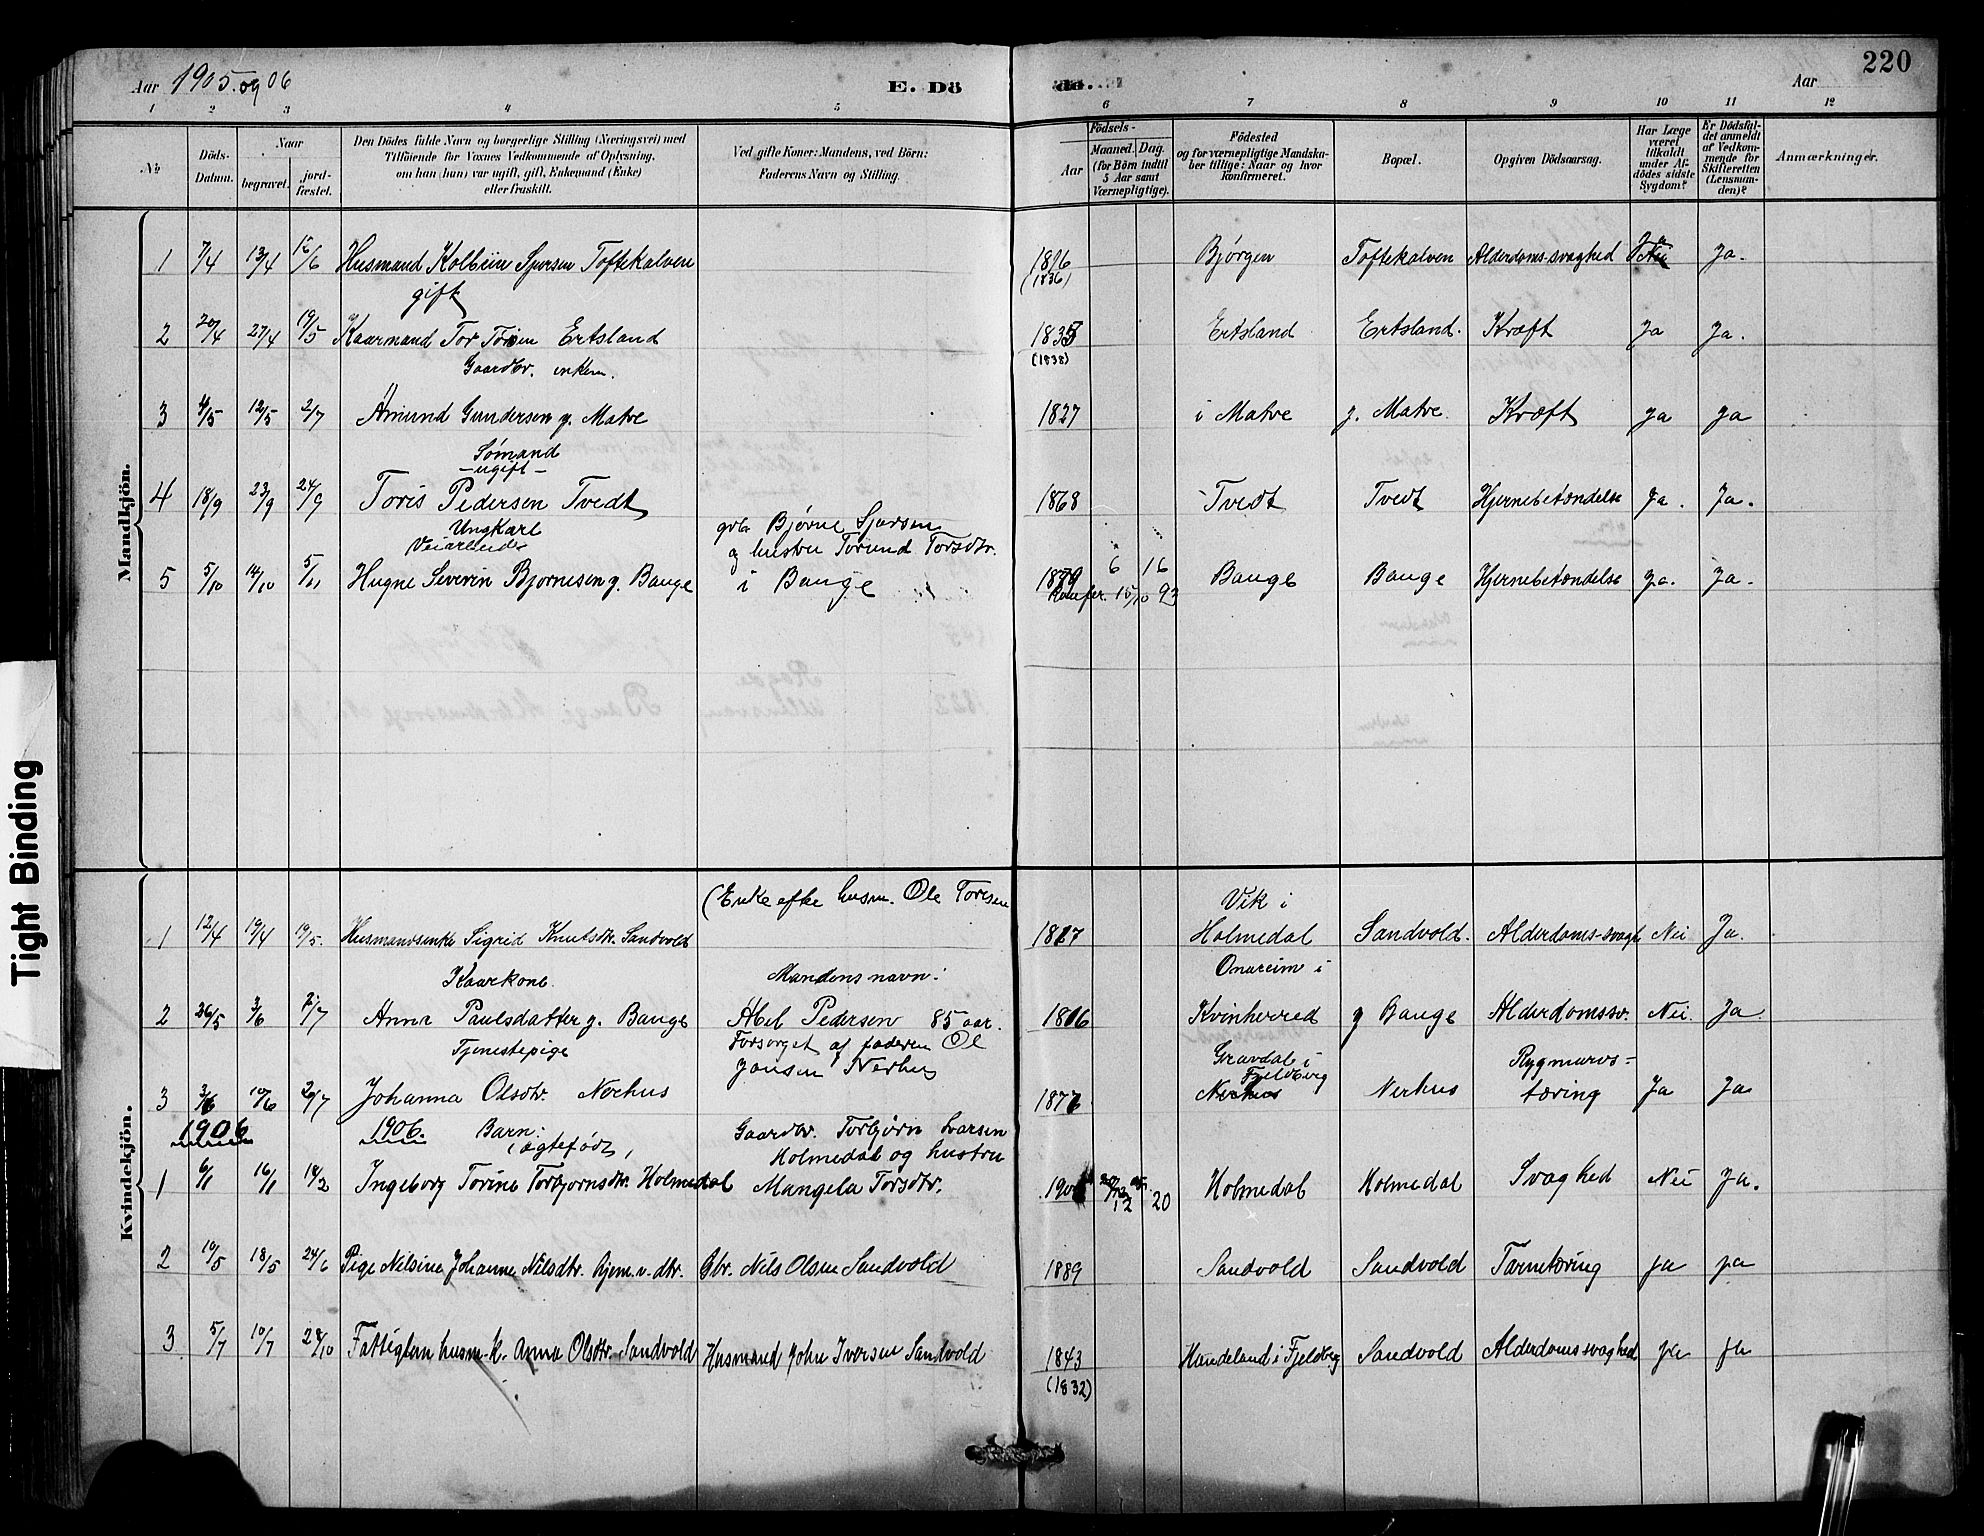 220
Aar 1905 og 06 E. Dö
de. Aar
1 2 3 4 5 6 7 8 9 10 11 12
No
Döds-Datum.
Naar
begravet.
jord-fæstet.
Den Dödes fulde Navn og borgerlige Stilling (Næringsvei) med
Tilföiende for Voxnes Vedkommende af Oplysning,
om han (hun) var ugift, gift, Enkemand (Enke)
eller fraskilt.
Ved gifte Koner: Mandens, ved Börn:
Faderens Navn og Stilling.
Födsels-
Aar
Maaned. Dag.
(for Börn indtil
5 Aar samt
Værnepligtige).
Födested
og for værnepligtige Mandska-
ber tillige: Naar og hvor
konfirmeret.
Bopæl.
Opgiven Dödsaarsag.
Har Læge
været
tilkaldt
under Af-
dödes sidste
Sygdom?
Er Dödsfal-
det anmeldt
af Vedkom-
mende for
Skifteretten
(Lensman-
den)?
Anmærkninger.
Mandkjön.
1 7/4 13/4 15/6 Husmand Kolbein Sjursen Toftekalven 1816 Bjørgen Toftekalven Alderdoms-svaghed Ja Nei Ja.
gift (1836)
2 20/4 27/4 19/5 Kaarmand Tor Torsen Ertsland 1835 Ertsland Ertsland. Kræft Ja Ja.
Gaardbr. enkem. (1838)
3 4/5 12/5 2/7 Amund Gundersen y. Matre 1827 i Matre y. Matre Kræft ja ja
Sømand
-ugift-
4 18/9 23/9 24/9 Toris Pedersen Tvedt 1868 Tvedt Tvedt Hjernebetændelse Ja. Ja.
Ungkarl gbr. Bjørne Sjursen
Veiarbeider og hustru Torund Torsdtr.
5 5/10 14/10 5/11 Hugne Severin Bjørnesen y. Bauge i Bauge 1879 6 16 Bauge Bauge Hjernebetændelse Ja. Ja.
Konfir. 15/10 93
Kvindekjön.
(Enke efter husm. Ole Toresen Vik i
1 12/4 19/4 19/5. Husmandsenke Sigrid Knutsdr. Sandvold 1817 Holmedal Sandvold. Alderdoms-svagh Nei Ja.
Kaarkone Mandens navn: Onareim i
2 26/5 3/6 2/7 Anna Paulsdatter y. Bauge Abel Pedersen 85 aar. 1816 Kvinherred y Bauge Alderdomssv. Nei. Ja.
Tjenestepige Forsørget af faderen Ol Gravdal i Rygmarvs-
Jonsen Nerhus Fjeldberg
3 3/6 10/6 20/7 Johanna Olsdtr. Nerhus 1877 Nerhus Nerhus tæring Ja Ja
1906 1906. Barn: Gaardbr. Torbjørn Ivarsen
(ægtefødt) Holmedal og hustru
1 6/1 16/1 18/2 Ingeborg Torine Torbjørnsdtr. Holmedal Mangela Torsdtr. 12 20 Holmedal Holmedal Svaghed Nei Ja.
2 10/5 18/5 24/6 Pige Nilsine Johanne Nilsdtr. hjem.v. dtr. Gbr. Nils Olsen Sandvold 1889 Sandvold Sandvold Tarmtæring ja ja
3 5/7 10/7 28/10 Fattiglem husm.k. Anna Olsdtr. Sandvold Husmand John Iversen Sandvold 1843 Handeland i Fjeldberg Sandvold Alderdomssvaghed ja ja
(1832)
Tight Binding